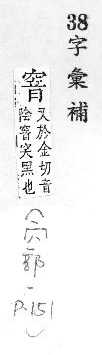 38字彙補
窨
又於金切音
陰窨黑也
(穴部-P.151)